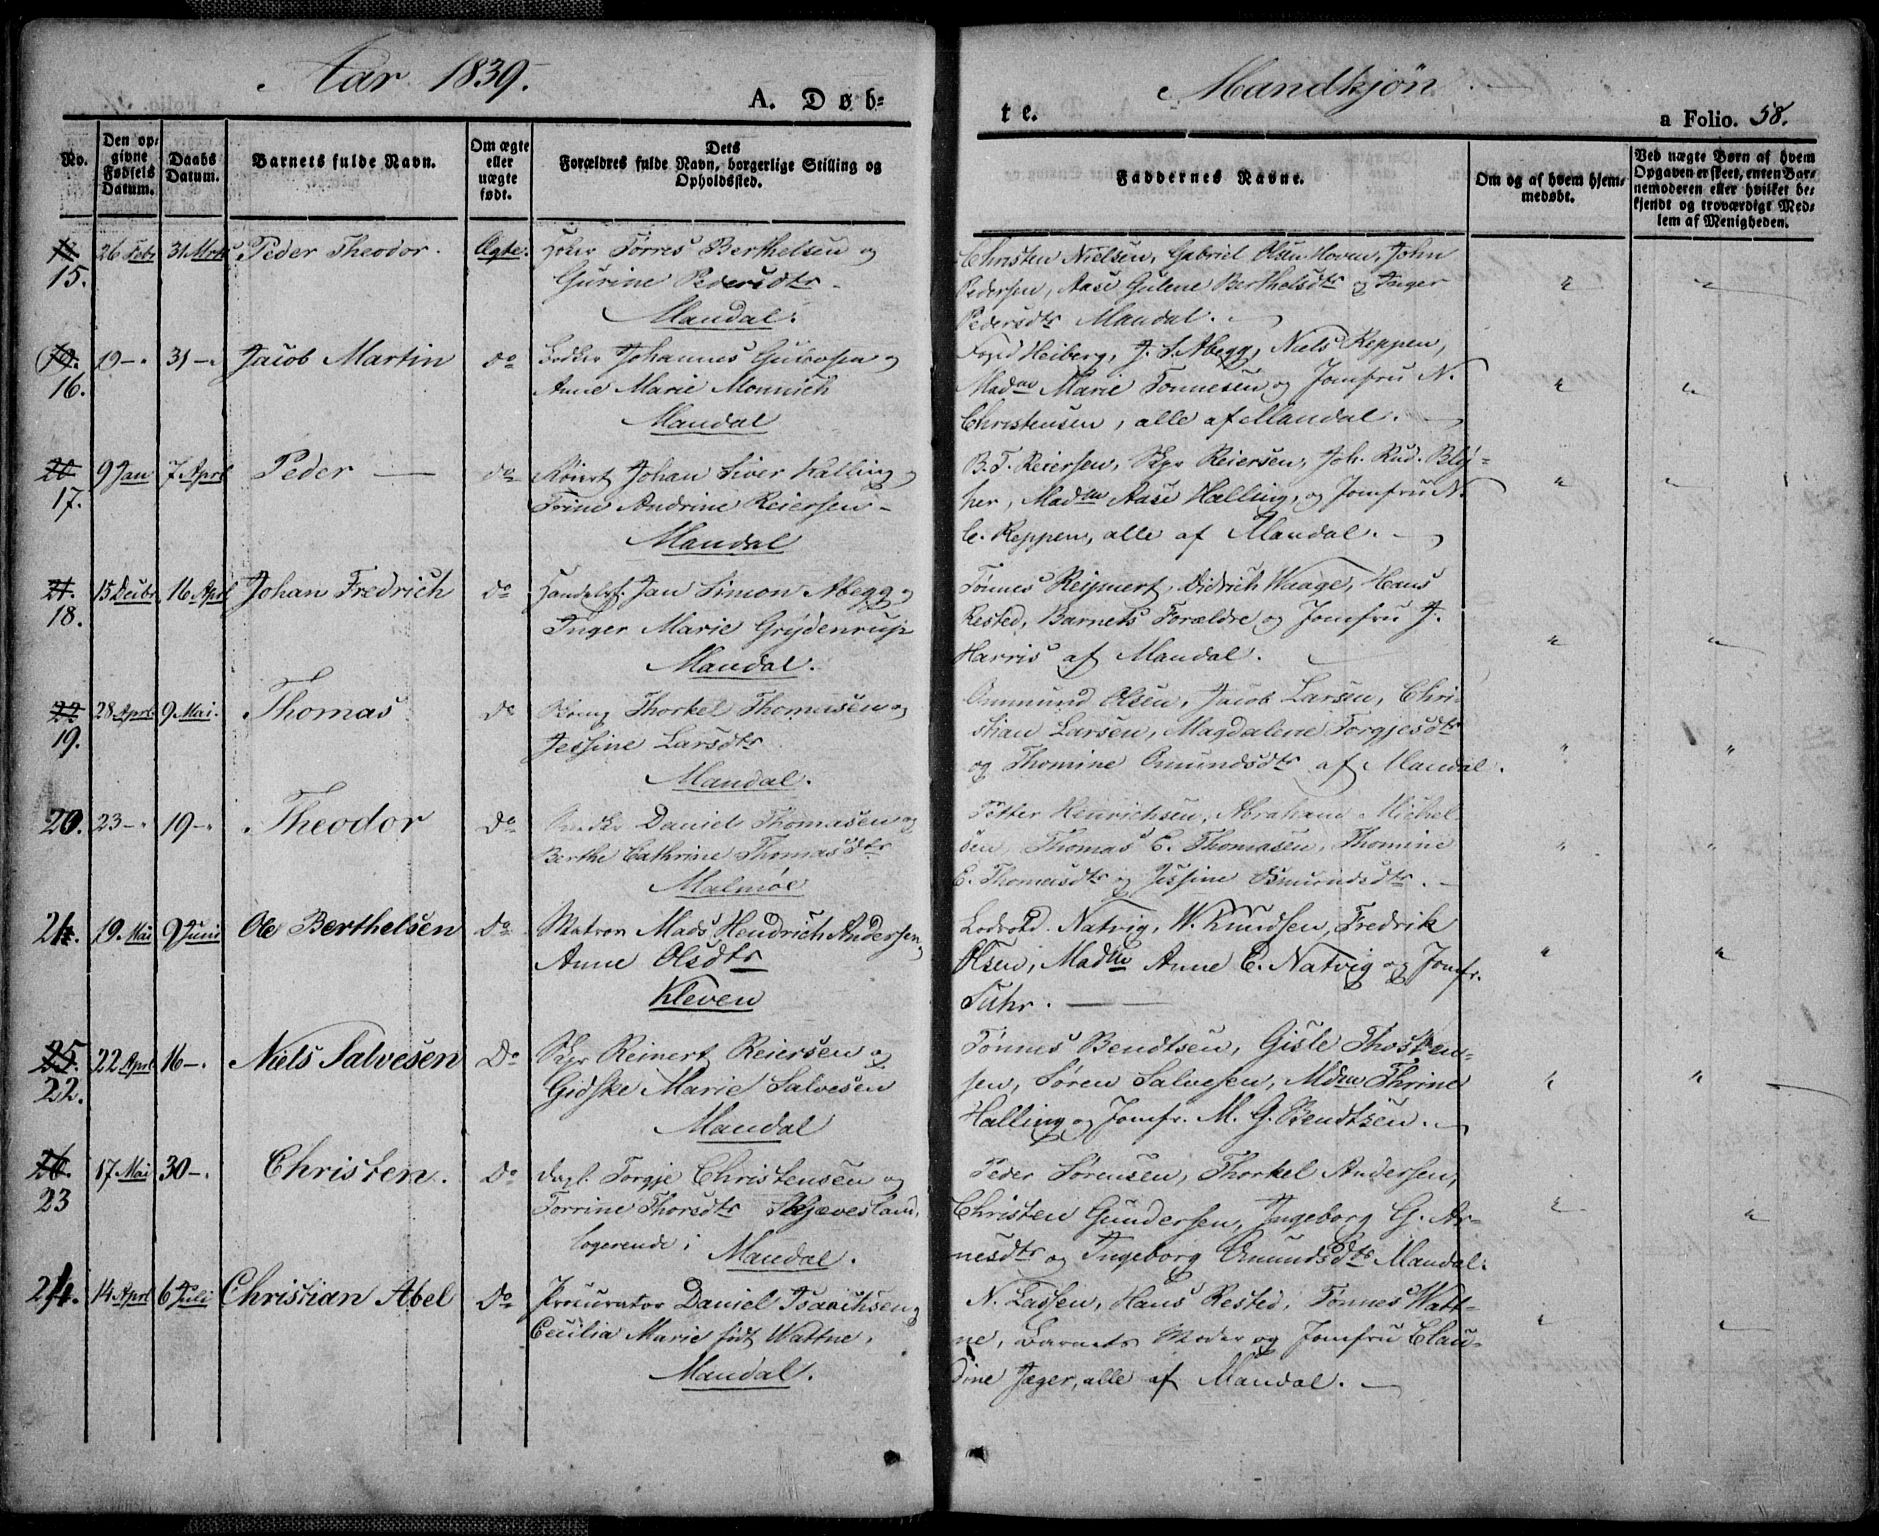 Aar 1839.
A. Døb-
te.
Mandkjøn
a Folio. 58.
No.
Den op-
givne
Fødsels
Datum.
Daabs
Datum.
Barnets fulde Navn.
Om ægte
eller
uægte
født.
Dets
Forældres fulde Navn, borgerlige Stilling og
Opholdssted.
Faddernes Navne.
Om og af hvem hjem-
medøbt.
Ved uægte Børn af hvem
Opgaven er skeet, enten Bar-
nemoderen eller hvilket be-
kjendt og troværdigt Med-
lem af Menigheden.
15.
26 Febr
31 Mrts
Peder Theodor.
Ægte.
Tørres Berthelsen og
Gurine Pedersdtr
Mandal.
Christen Nielsen, Gabriel Olsen Hoven, John
Pedersen, Aase Gulene Berthelsdtr og Inger
Pedersdtr Mandal.
19.
16.
19 —
31 —
Jacob Martin
do
Johannes og
Anne Marie Monnich
Mandal
Foged Heiberg, J. S. Abegg, Niels Reppen,
Madm Marie Tønnesen og Jomfru N.
Christensen, alle af Mandal.
20
17.
9 Jan
7 Aprl
Peder
do
Johan Siver Halling og
Trine Andrine Reiersen
Mandal
B. T. Reiersen, Skpr Reiersen, Joh. Rud. Bly-
her, Madm Aase Halling, og Jomfru N.
C. Reppen, alle af Mandal.
21.
18.
15 Decbr
16 Aprl
Johan Fredrich
do
Handelsf. Jan Simon Abegg og
Inger Marie Grydenrup
Mandal.
Tønnes Reimert, Didrich Waage, Hans
Rested, Barnets Forældre og Jomfru J.
Harris af Mandal.
22
19.
28 Aprl
9 Mai.
Thomas
do
Thorkel Thomasen og
Jessine Larsdtr
Mandal.
Ommund Olsen, Jacob Larsen, Chri-
stian Larsen, Magdalene Torgjesdtr
og Thomine Omundsdtr af Mandal.
20.
23 —
19 —
Theodor
Do
Daniel Thomasen og
Berthe Cathrine Thomasdtr
Malmøe
Petter Henrichsen, Abraham Michel
sen, Thomas C. Thomasen, Thomine
C. Thomasdtr og Jessine Osmundsdtr.
21.
19. Mai
9 Juni
Ole Berthelsen
Do
Matros Mads Hendrich Andersen,
Anne Olsdtr
Kleven
Lodsold. Natvig, W. Knudsen, Fredrik
Olsen, Madm Anne C. Natvig og Jomfr.
Suhr.
25.
22.
22 Aprl
16 —
Niels Salvesen
Do
Skpr Reinert Reiersen og
Gidske Marie Salvesen
Mandal
Tønnes Bendtsen, Gisle Thosten-
sen, Søren Salvesen, Mdm Thrine
Halling og Jomfr. M. G. Bendtsen.
26.
23
17 Mai
30 —
Christen.
Do
Dagl. Torgje Christensen og
Torrine Thorsdtr Skjævesland,
logerende i Mandal.
Peder Sørensen, Thorkel Andersen,
Christen Gundersen, Ingeborg G. Ar-
nesdtr og Ingeborg Omundsdtr Mandal.
24.
14 Aprl
6 Juli
Christian Abel
Do
Procurator Daniel Isaachsen og
Cecilia Marie født Wattne,
Mandal.
N. Lassen, Hans Rested, Tønnes Watt-
ne, Barnets Moder og Jomfru Clau-
dine Jæger, alle af Mandal.